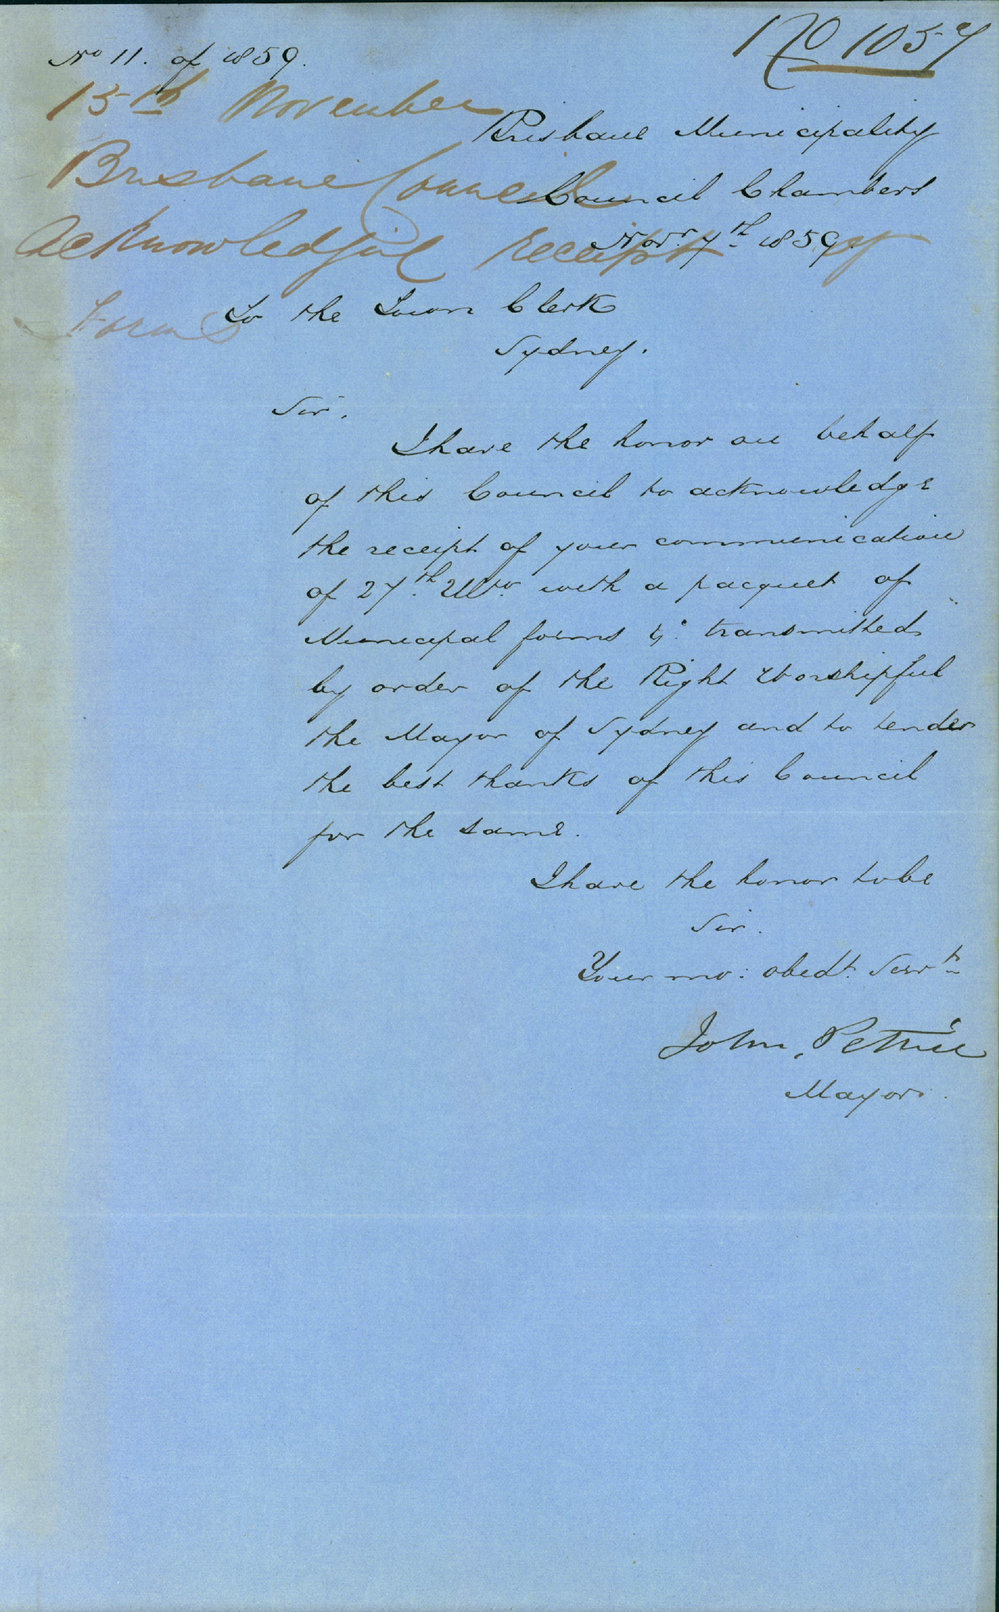 No 11. of 1859.
No 1057
15th November
Brisbane Council
Acknowledging receipt of
Forms
Brisbane Municipality
Council Chambers
Novr. 7th. 1859
To the Town Clerk
Sydney.
Sir,
I have the honor on behalf
of this Council to acknowledge
the receipt of your communication
of 27th. Ulto. with a pacquet of
Municipal forms &c. transmitted
by order of the Right Worshipful
the Mayor of Sydney and to tender
the best thanks of this Council
for the same.
I have the honor to be
Sir.
Your mo: obedt. Servt.
John Petrie
Mayor.